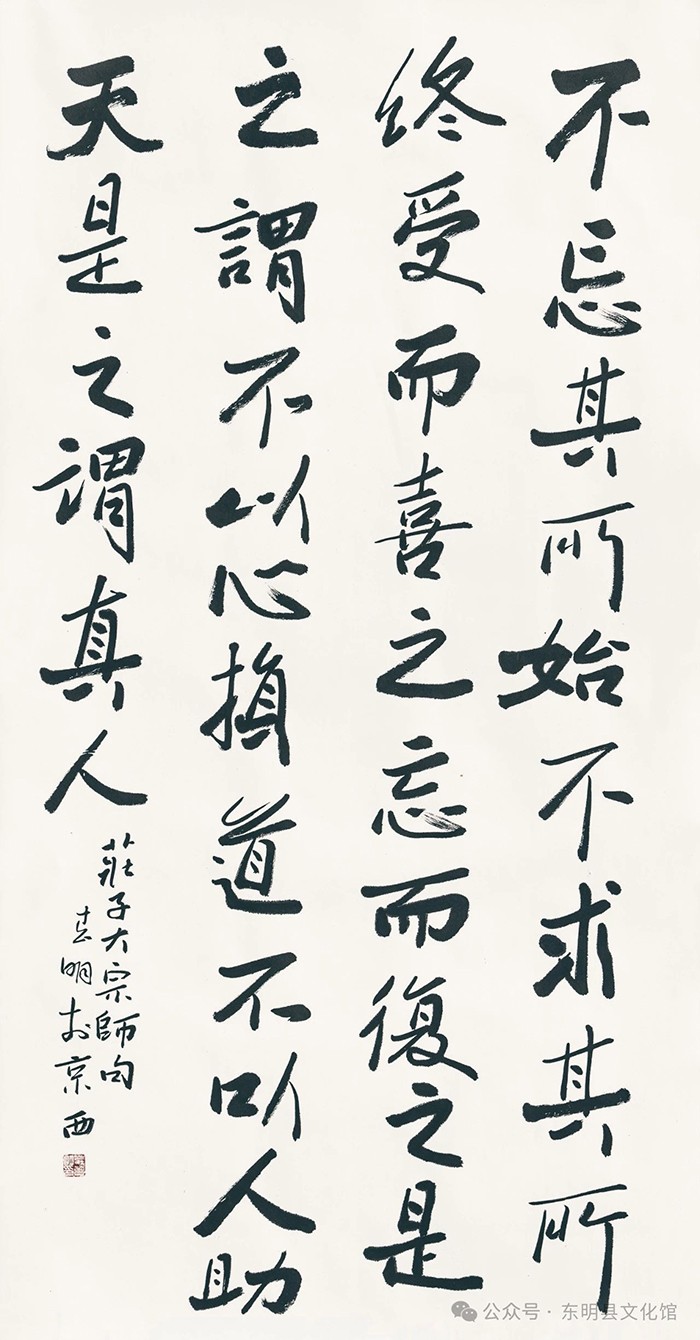 不忘其所始不求其所
終受而喜之忘而復之是
之謂不以心損道不以人助
天是之謂真人
莊子大宗師句
志明於京西
公众号 · 东明县文化馆